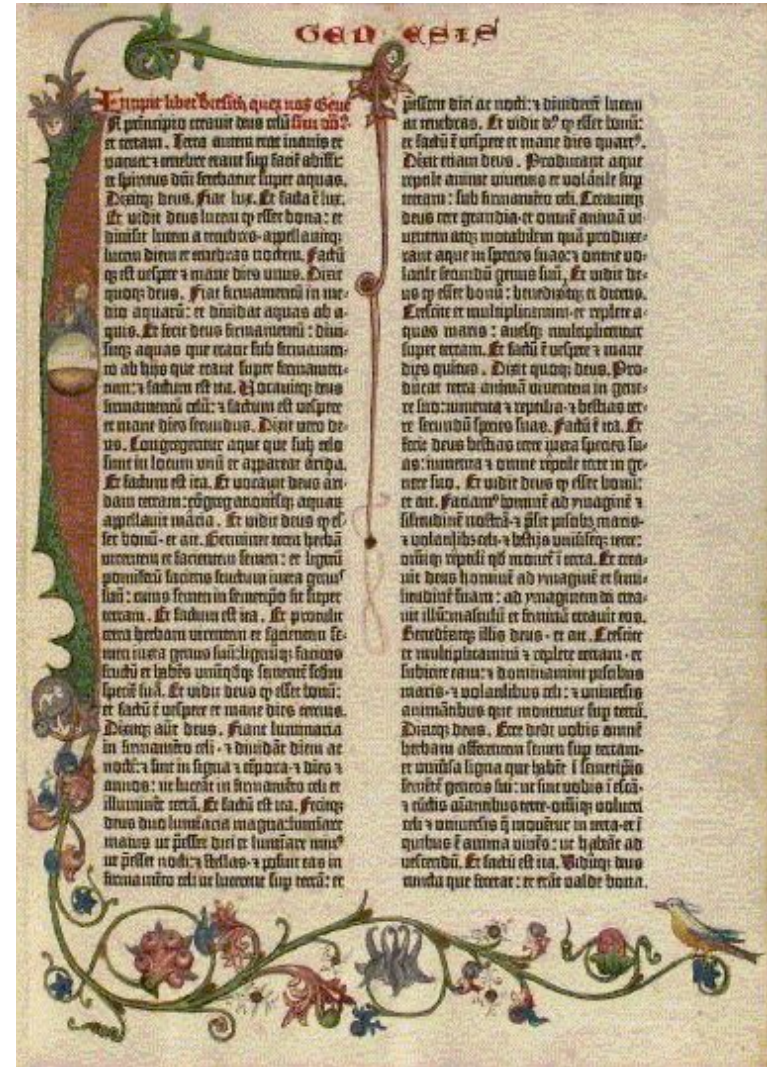 GENESIS
Incipit liber Bresith quez nos Gene
In principio creauit deus celū sim dic⁹.
et terram. Terra autem erat inanis et
vacua: ⁊ tenebre erant sup faciē abissi:
et spiritus dn̄i ferebatur super aquas.
Dixitqꝫ deus. Fiat lux. Et facta ē lux.
Et vidit deus lucem ꝙ esset bona: et
diuisit lucem a tenebris · appellauitqꝫ
lucem diem et tenebras noctem. Factū
qꝫ est vespere ⁊ mane dies vnus. Dixit
quoqꝫ deus. Fiat firmamentū in me-
dio aquarū: et diuidat aquas ab a-
quis. Et fecit deus firmamentū: diui-
sitqꝫ aquas que erant sub firmamen-
to ab hijs que erant super firmamen-
tum: ⁊ factum est ita. Vocauitqꝫ deus
firmamentū celū: ⁊ factum est vespere
et mane dies secundus. Dixit vero de-
us. Congregentur aque que sub celo
sunt in locum vnū et appareat arida.
Et factum est ita. Et vocauit deus ari-
dam terram: cōgregationesqꝫ aquarū
appellauit maria. Et vidit deus ꝙ es-
set bonū · et ait. Germinet terra herbā
virentem et facientem semen: et lignū
pomiferū faciens fructum iuxta genus
suū: cuius semen in semetipō sit super
terram. Et factum est ita. Et protulit
terra herbam virentem et facientem se-
men iuxta genus suū: lignūqꝫ faciens
fructū et habēs vnūqdqꝫ sementē scdm
speciē suā. Et vidit deus ꝙ esset bonū:
et factū ē vespere et mane dies tercius.
Dixitqꝫ autē deus. Fiant luminaria
in firmamēto celi · ⁊ diuidāt diem ac
noctē: ⁊ sint in signa ⁊ tēpora · ⁊ dies ⁊
annos: ut luceāt in firmamēto celi et
illuminēt terrā. Et factū est ita. Fecitqꝫ
deus duo luminaria magna: luminare
maius ut p̄esset diei et luminare min⁹
ut p̄esset nocti: ⁊ stellas · ⁊ posuit eas in
firmamēto celi ut lucerent sup terrā: et
p̄essent diei ac nocti: ⁊ diuiderēt lucem
ac tenebras. Et vidit de⁹ ꝙ esset bonū:
et factū ē vespere et mane dies quart⁹.
Dixit etiam deus. Producant aque
reptile anime viuentis et volatile sup
terram: sub firmamēto celi. Creauitqꝫ
deus cete grandia · et omnē animā vi-
uentem atqꝫ motabilem quā produxe-
rant aque in species suas: ⁊ omne vo-
latile secundū genus suū. Et vidit de-
us ꝙ esset bonū: benedixitqꝫ ei dicens.
Crescite et multiplicamini · et replete a-
quas maris: auesqꝫ multiplicentur
super terram. Et factū ē vespere ⁊ mane
dies quintus. Dixit quoqꝫ deus. Pro-
ducat terra animā viuentem in gene-
re suo: iumenta ⁊ reptilia · ⁊ bestias ter-
re secundū species suas. Factū ē ita. Et
fecit deus bestias terre iuxta species su-
as: iumenta ⁊ omne reptile terre in ge-
nere suo. Et vidit deus ꝙ esset bonū:
et ait. Faciam⁹ hominē ad ymaginē ⁊
similitudinē nostrā · ⁊ p̄sit piscibꝫ maris ·
⁊ volatilibꝫ celi · ⁊ bestijs vniuīseqꝫ terre:
omniqꝫ reptili qd mouet ī terra. Et crea-
uit deus hominē ad ymaginē et simi-
litudinē suam: ad ymaginem dei crea-
uit illū: masculū et feminā creauit eos.
Benedixitqꝫ illis deus · et ait. Crescite
et multiplicamini ⁊ replete terram · et
subicite eam: ⁊ dominamini piscibus
maris · ⁊ volatilibus celi: ⁊ vniuersis
animātibus que mouentur sup terrā.
Dixitqꝫ deus. Ecce dedi vobis omnē
herbam afferentem semen sup terram ·
et vniūsa ligna que habēt ī semetipīs
sementē generis sui: ut sint vobis ī escā ·
⁊ cūctis aīantibus terre · omniqꝫ volucri
celi ⁊ vniuersis q̄ mouētur in terra · et ī
quibus ē anima viuēs: ut habeāt ad
vescendū. Et factū est ita. Viditqꝫ deus
cuncta que fecerat: et erāt valde bona.